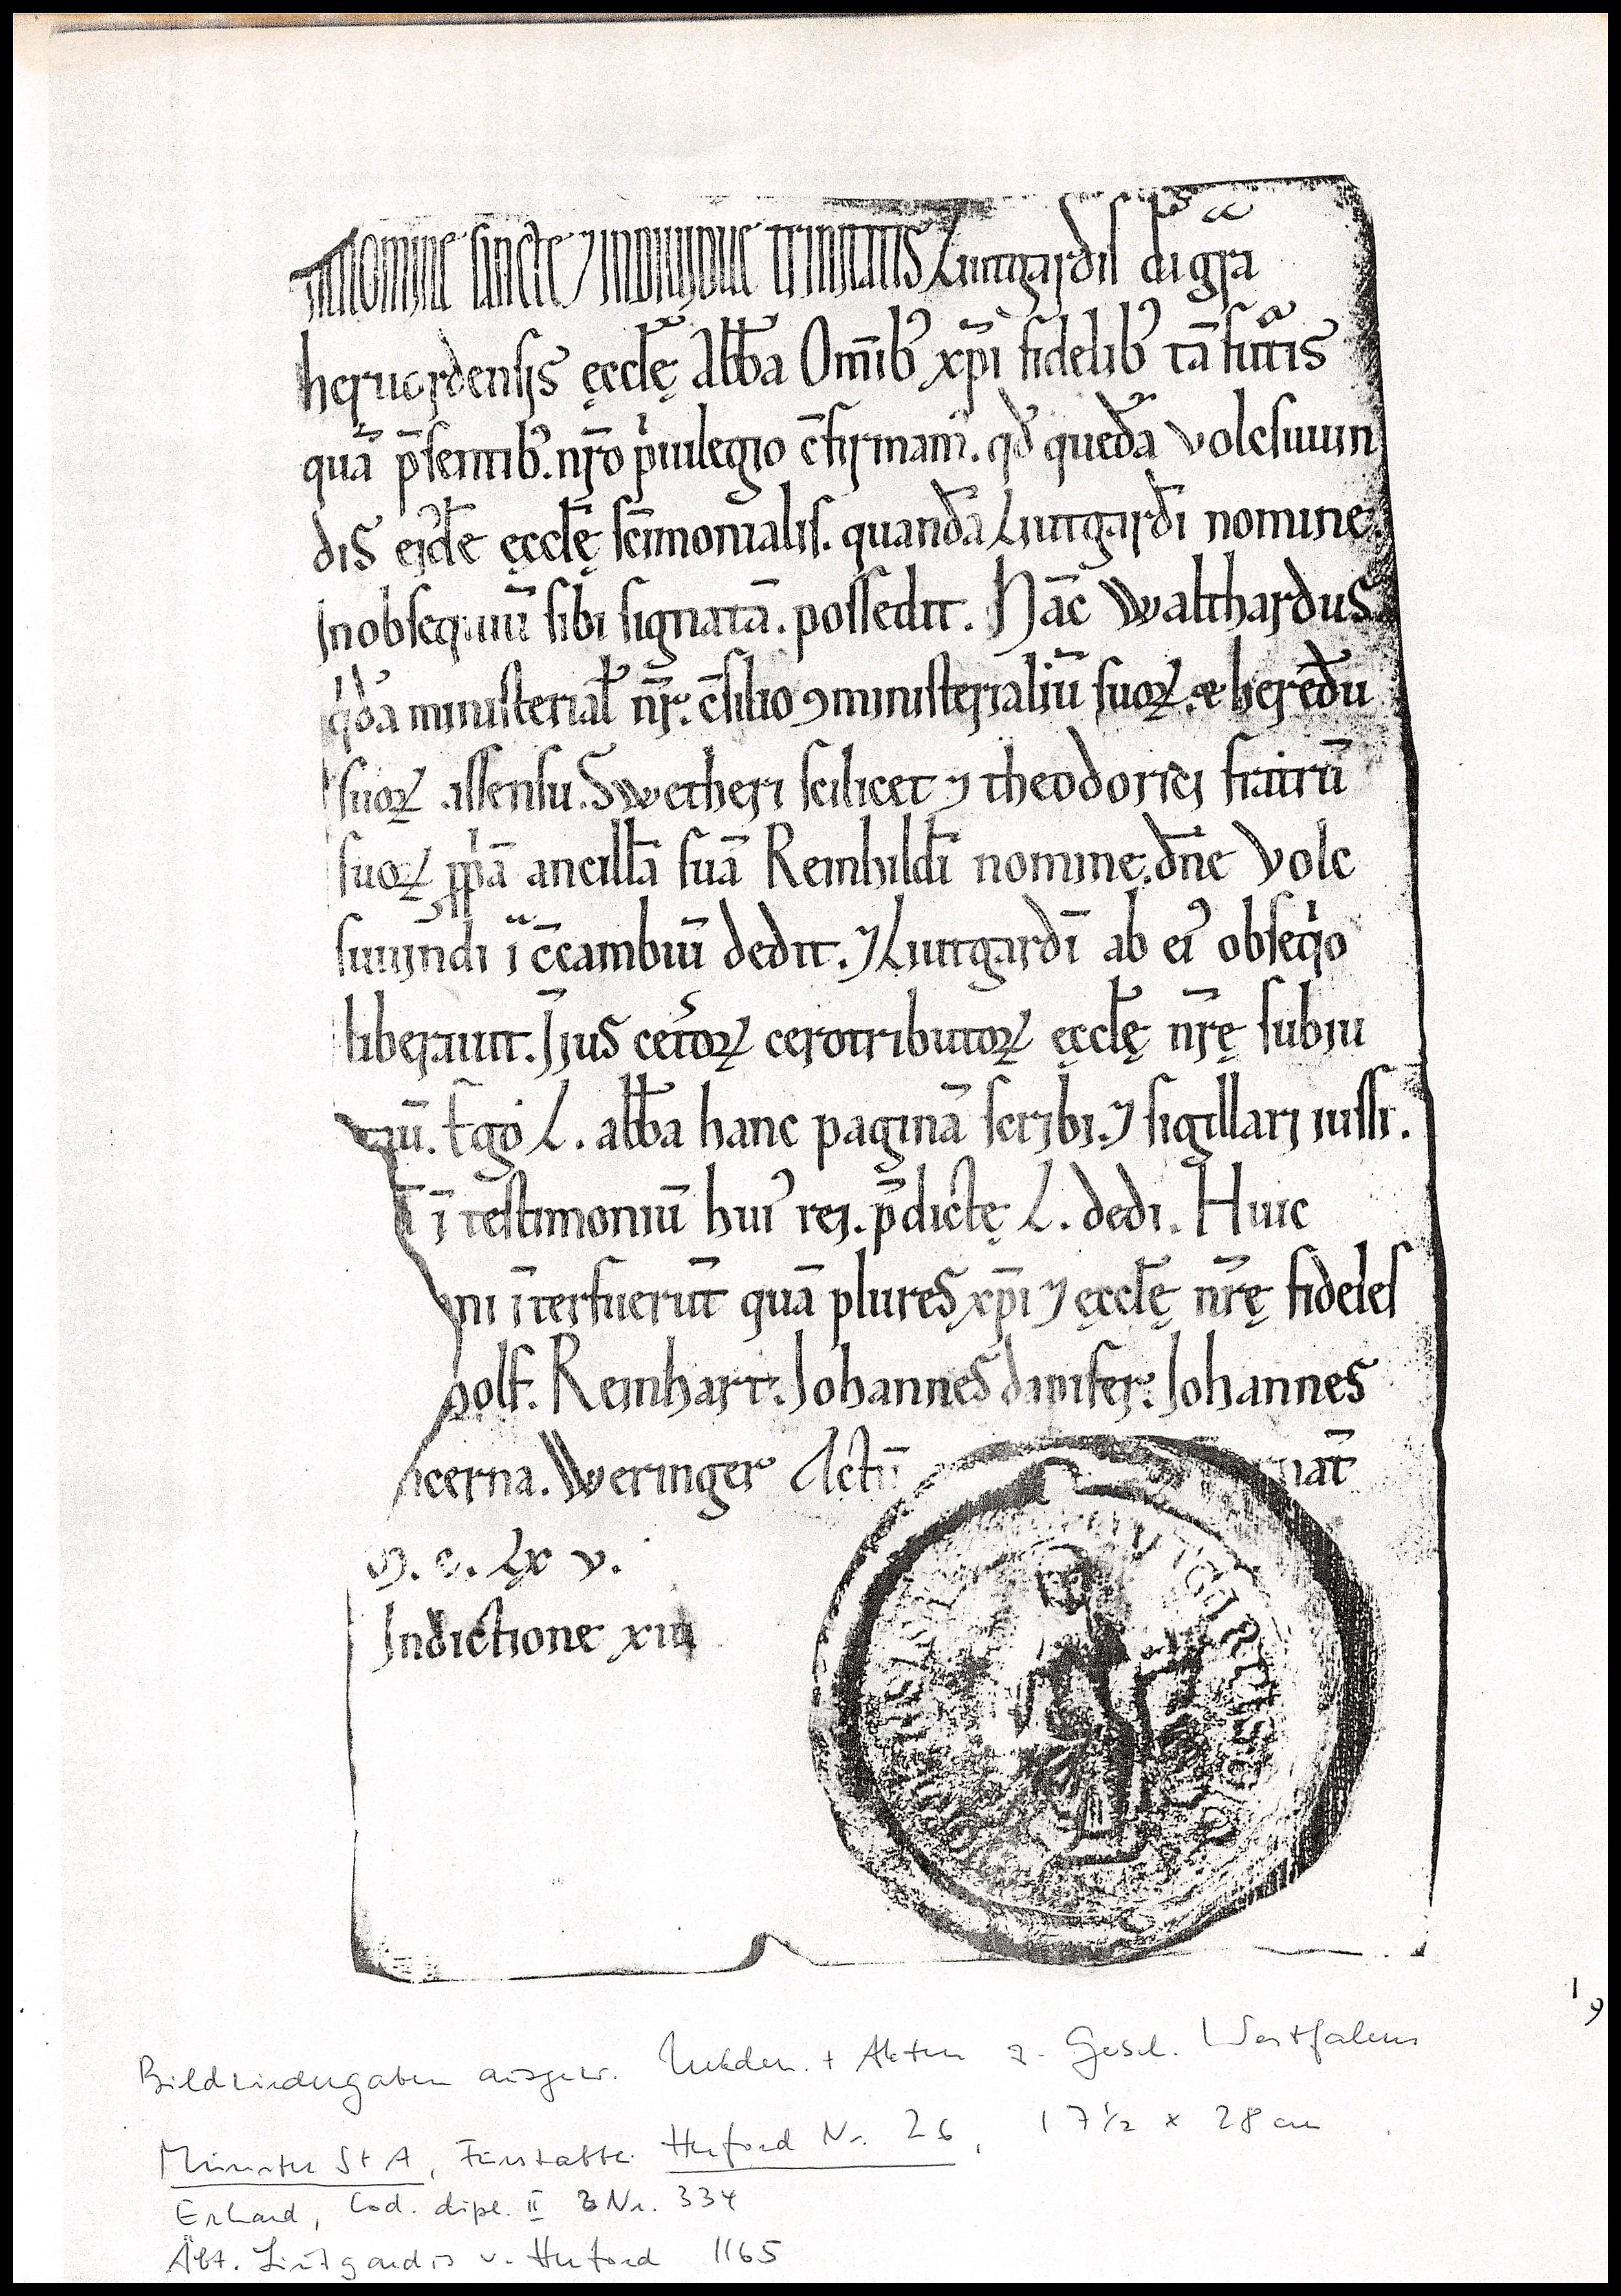 In nomine sancte ⁊ indiuidue trinitatis Liutgardis di gr̄a
heruordensis ęccl̄ę abb̄a Om̄ibꝰ xp̄i fidelibꝰ tā futuris
quā p̄sentibꝰ. nr̄o p̍uilegio c̄firmam᷒. qd̄ quedā volcsuuin
dis eiꝰdē ęccl̄ę sc̄imonialis. quandā Liutgardī nomine.
In obsequiū sibi signatā. possedit. Hāc Walthardus
q̍dā ministerial̄ nr̄. c̄silio ꝯministerialiū suoꝝ. & heredū
suoꝝ assensu. Swetheri scilicet ⁊ theodorici fratrū
suoꝝ ꝓp̍ā ancillā suā Reinhildī nomine. dn̄e Volc
suuindi ī c̄cambiū dedit. ⁊ Liutgardī ab eiꝰ obseq̍o
liberauit. Ius ceteroꝝ cerotributoꝝ ęccl̄ę nr̄ę subiu
ū. Ego L. abb̄a hanc paginā scribi. ⁊ sigillari iussi.
ī testimoniū huiꝰ rei. p̄dictę L. dedi. Huic
ni īterfuerūt quā plures xp̄i ⁊ ęccl̄ę nr̄ę fideles
olf. Reinhart. Johannes dapifer. Johannes
ncerna. Weringer Actū nat̄
M. c. Lx v.
Indictione xiii
19
Bildwiedergaben ausgew. Urkden. + Akten z. Gesch. Westfalens
Münster StA, Fürstabtei Herford Nr. 26, 17 1/2 x 28 cm
Erhard, Cod. dipl. II Nr. 334
Äbt. Liutgardis v. Herford 1165